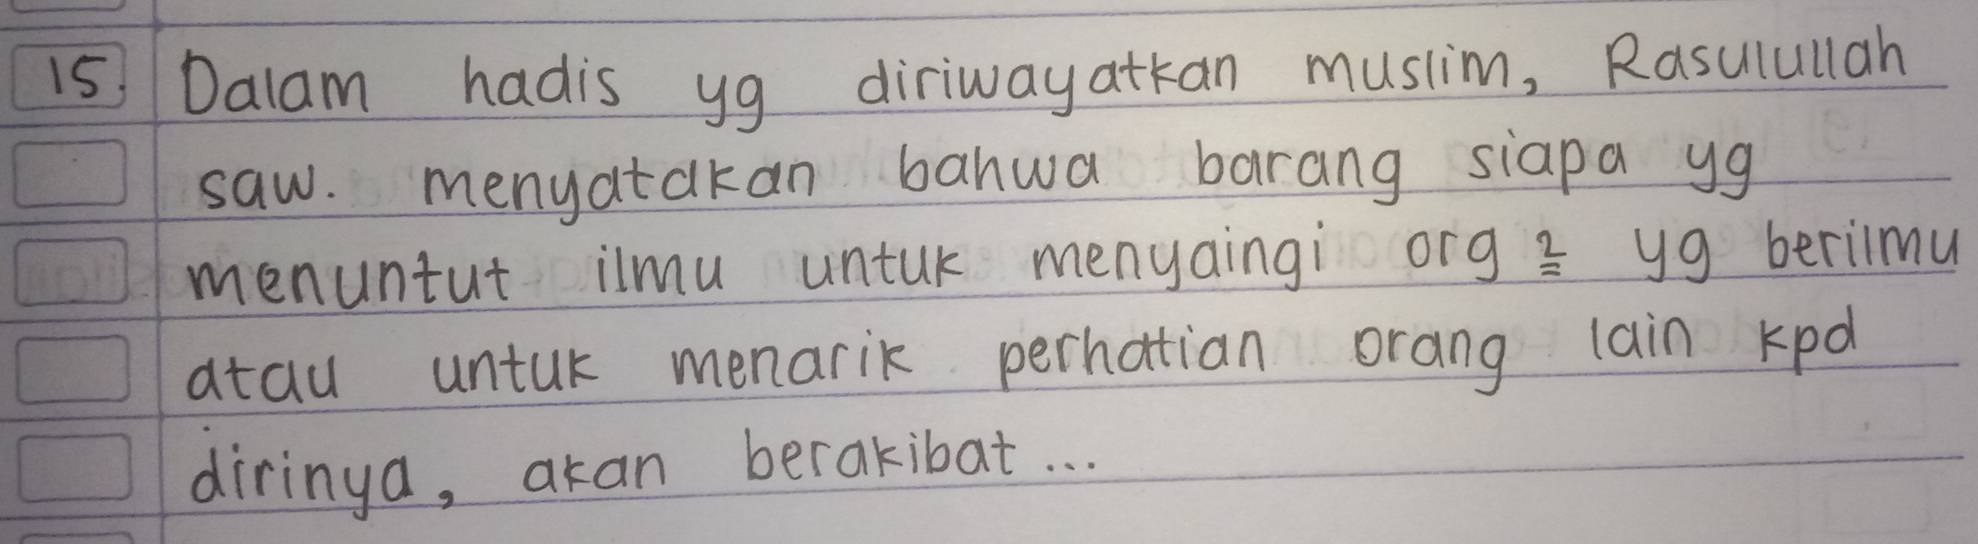 15. Dalam hadis yg diriwayatkan muslim, Rasulullah
saw. menyatakan bahwa barang siapa yg
menuntut ilmu untuk menyaingi org 2 yg berilmu
atau untuk menarik perhatian orang lain kpd
dirinya, akan berakibat...